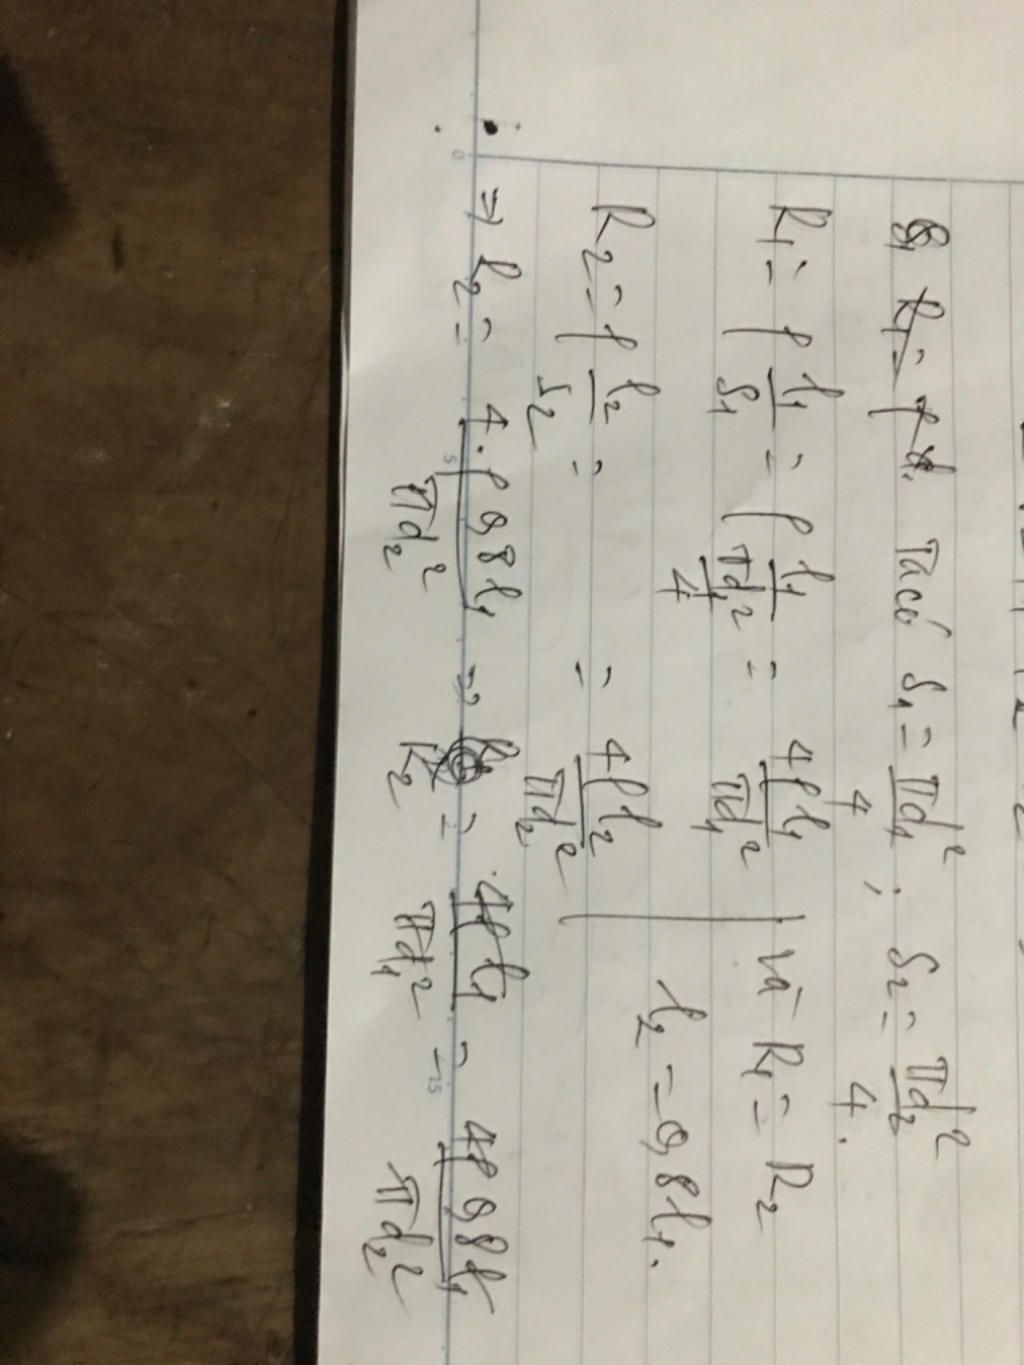 Ta có S₁ = πd₁²/4 ; S₂ = πd₂²/4.
R₁ = ρ l₁/S₁ = ρ l₁/(πd₁²/4) = 4ρl₁/πd₁² và R₁ = R₂
l₂ = 0,8l₁.
R₂ = ρ l₂/S₂ = = 4ρl₂/πd₂²
⇒ R₂ = 4.ρ 0,8l₁/πd₂² ⇒ R₂ = 4ρl₁/πd₁² = 4ρ 0,8l₁/πd₂²